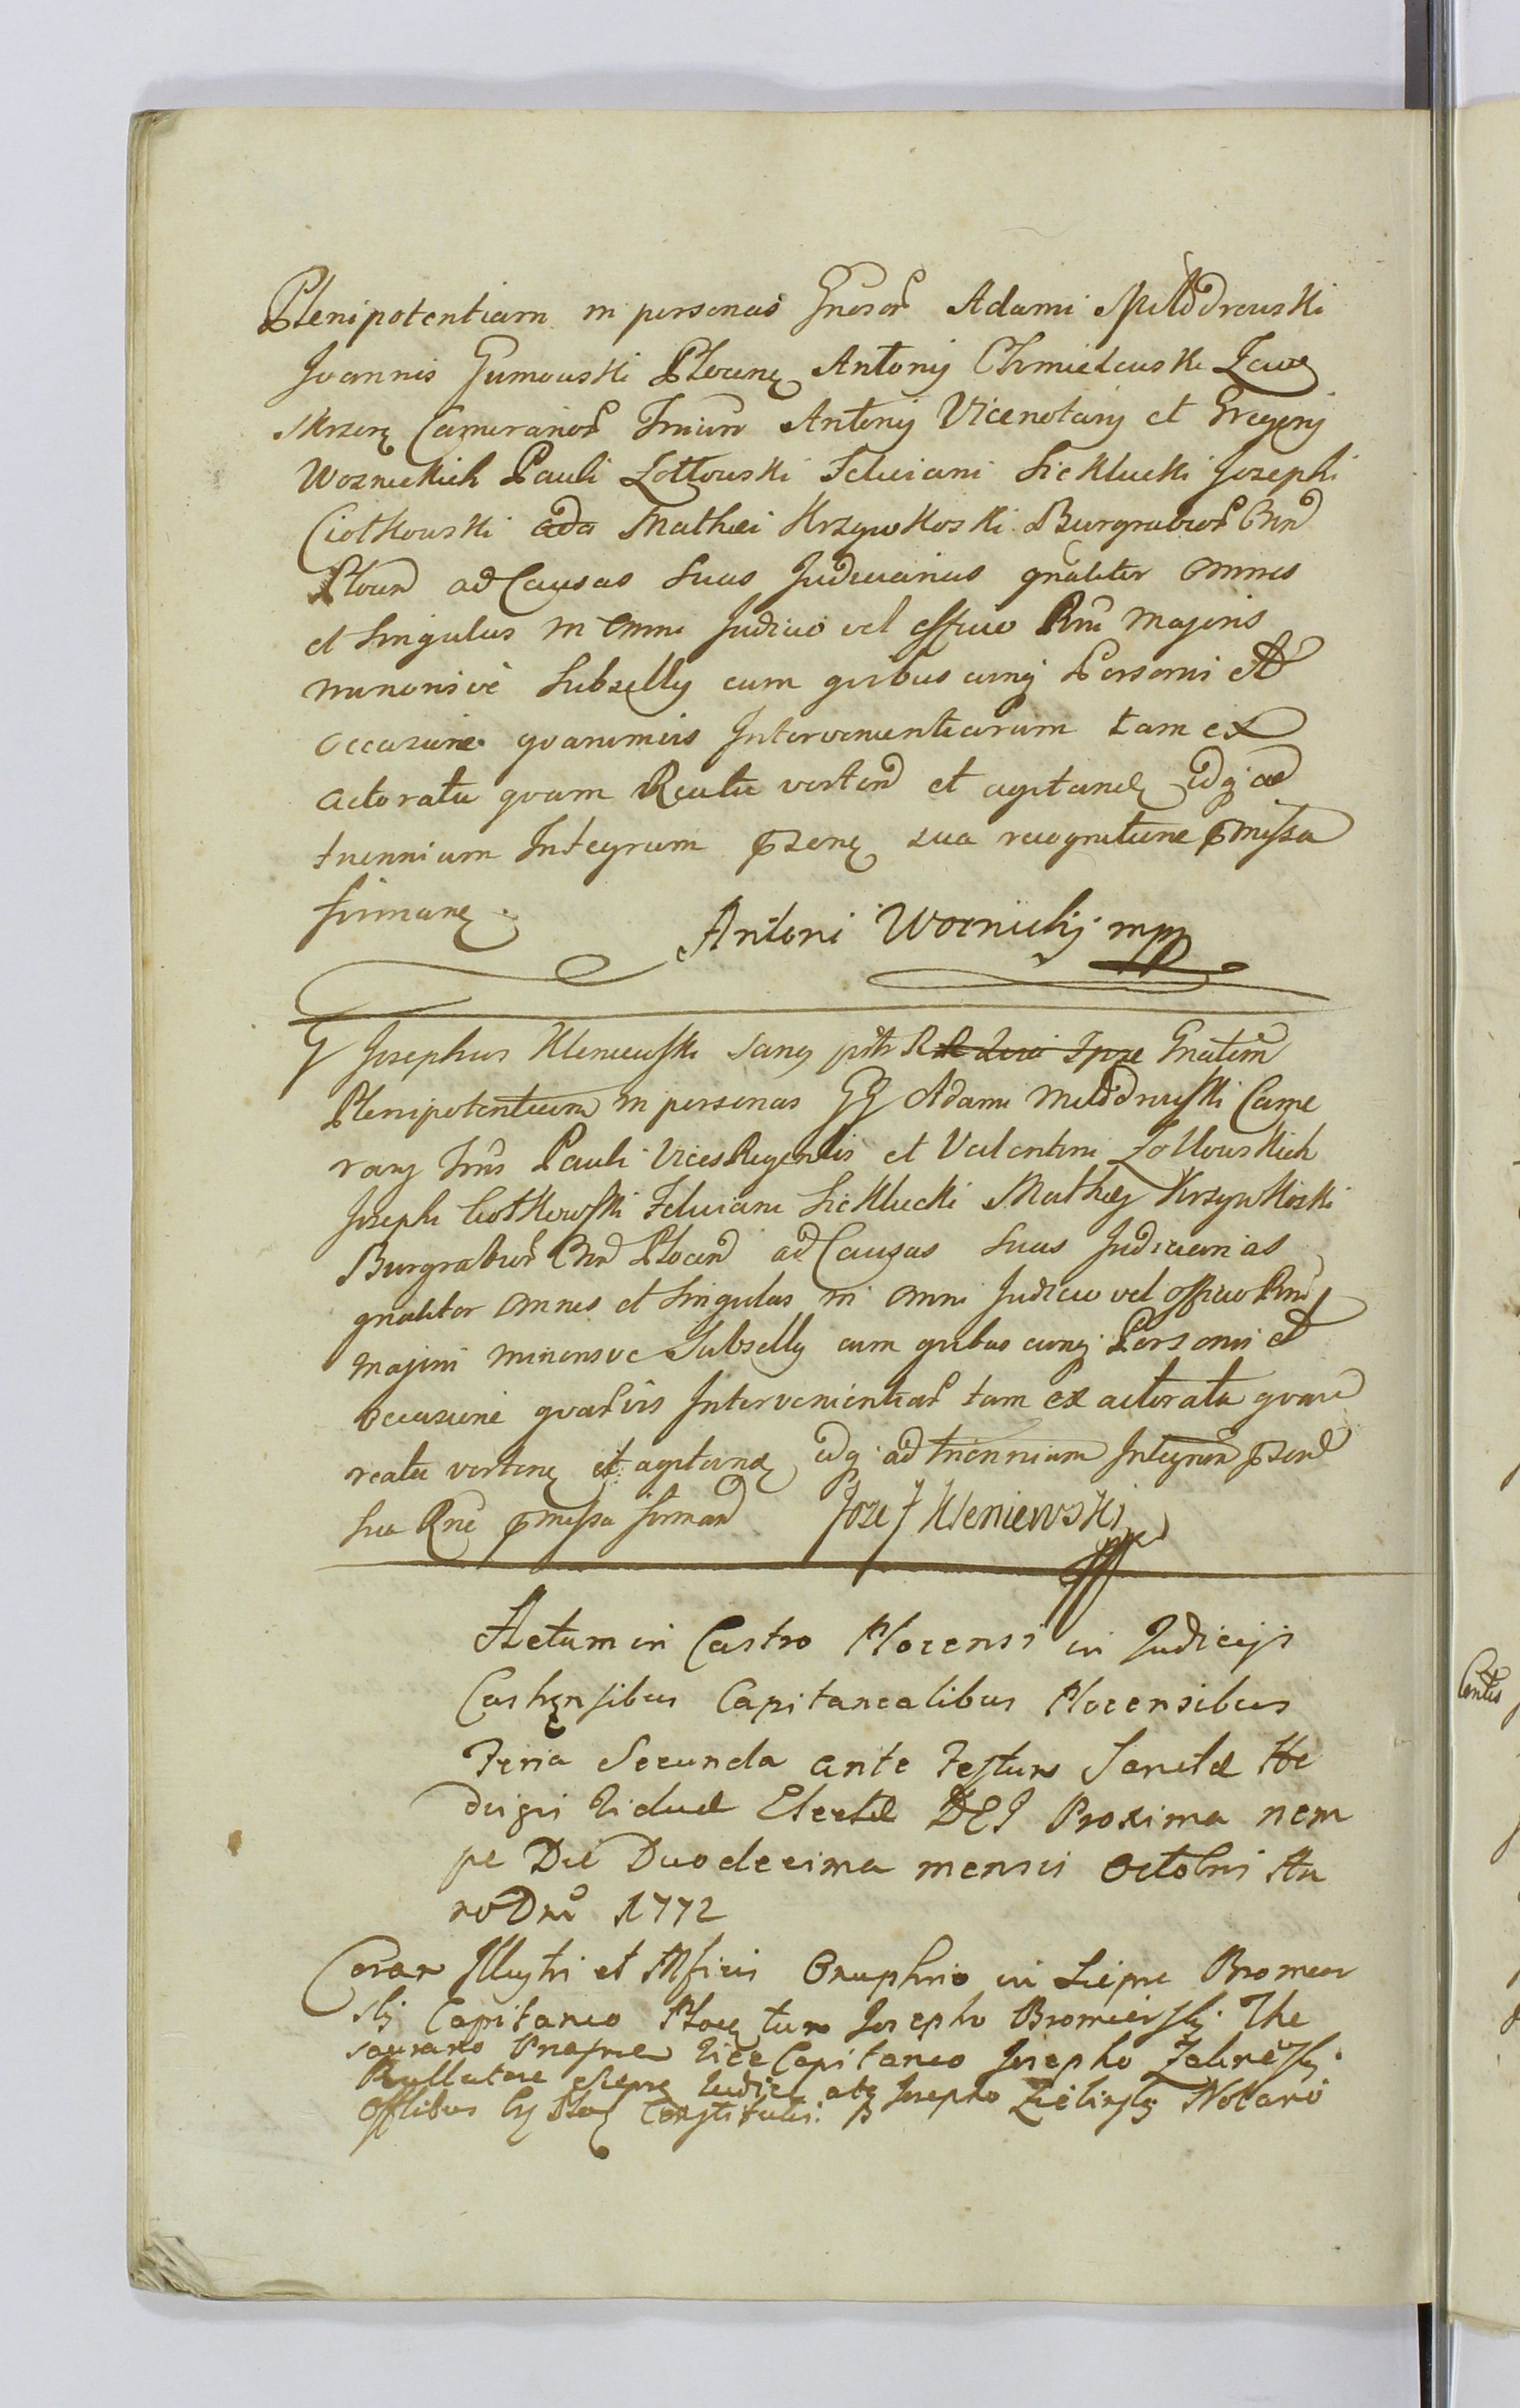 Plenipotentiam in personas Gnosor Adami Miłodrowski
Joannis Gumowski Plocen Antonij Chmielewski Zaw
Skrzen Camerarior Trium Antonij Vicenotarij et Gregorij
Woznickich Pauli Zołtowski Feliciani Sieklucki Josephi
Ciotkowski Mathei Krzywkoski Burgrabior Cnd
Plocen ad Causas Suas Judiciarias gnaliter omnes
et Singulas in Omni Judicio vel officio Rni Majoris
minorisve Subselly cum quibus cunq Personis et
occasione quarumvis Intervenientiarum tam ex
actoratu quam Reatu verten et agitand idq ad
triennium Integrum pzen sua recognitione pmissa
firman
Antoni Woznicky mp
G Josephus Kleniewski Sanq pth R Gnalem
Plenipotentiam in personas GG Adami Miłodrowski Came
rary Trris Pauli Vices Regentis et Valentini Zołtowskich
Josephi Ciotkowski Feliciani Sieklucki Mathey Krzywkoski
Burgrabior Cnd Plocen ad Causas Suas Judiciarias
gnaliter omnes et Singulas in omni Judicio vel officio Rni
majoris minorisve Subselly cum quibus cunq Personis et
occasione quarvis Intervenientiar tam ex actoratu quam
reatu verten et agitand idq ad triennium Integrum pzen
sua Rne pmissa firmand Jozef Kleniewski
mp
Actum in Castro Plocensi in Judicijs
Castrensibus Capitanealibus Plocensibus
Feria Secunda ante Festum Sanctæ He
duigis Viduæ Electæ DEI Proxima nem
pe Die Duodecima mensis Octobris An
no Dni 1772
Coram Illustri et Mfico Onuphrio in Siepre Bromier
ski Capitaneo Plocen tum Josepho Bromierski The
saurario Vice Capitaneo Josepho Zaleski
Judice atq Josepho Zielinski Notario
Offlibus Cis Ploc Constitutis.
Centis